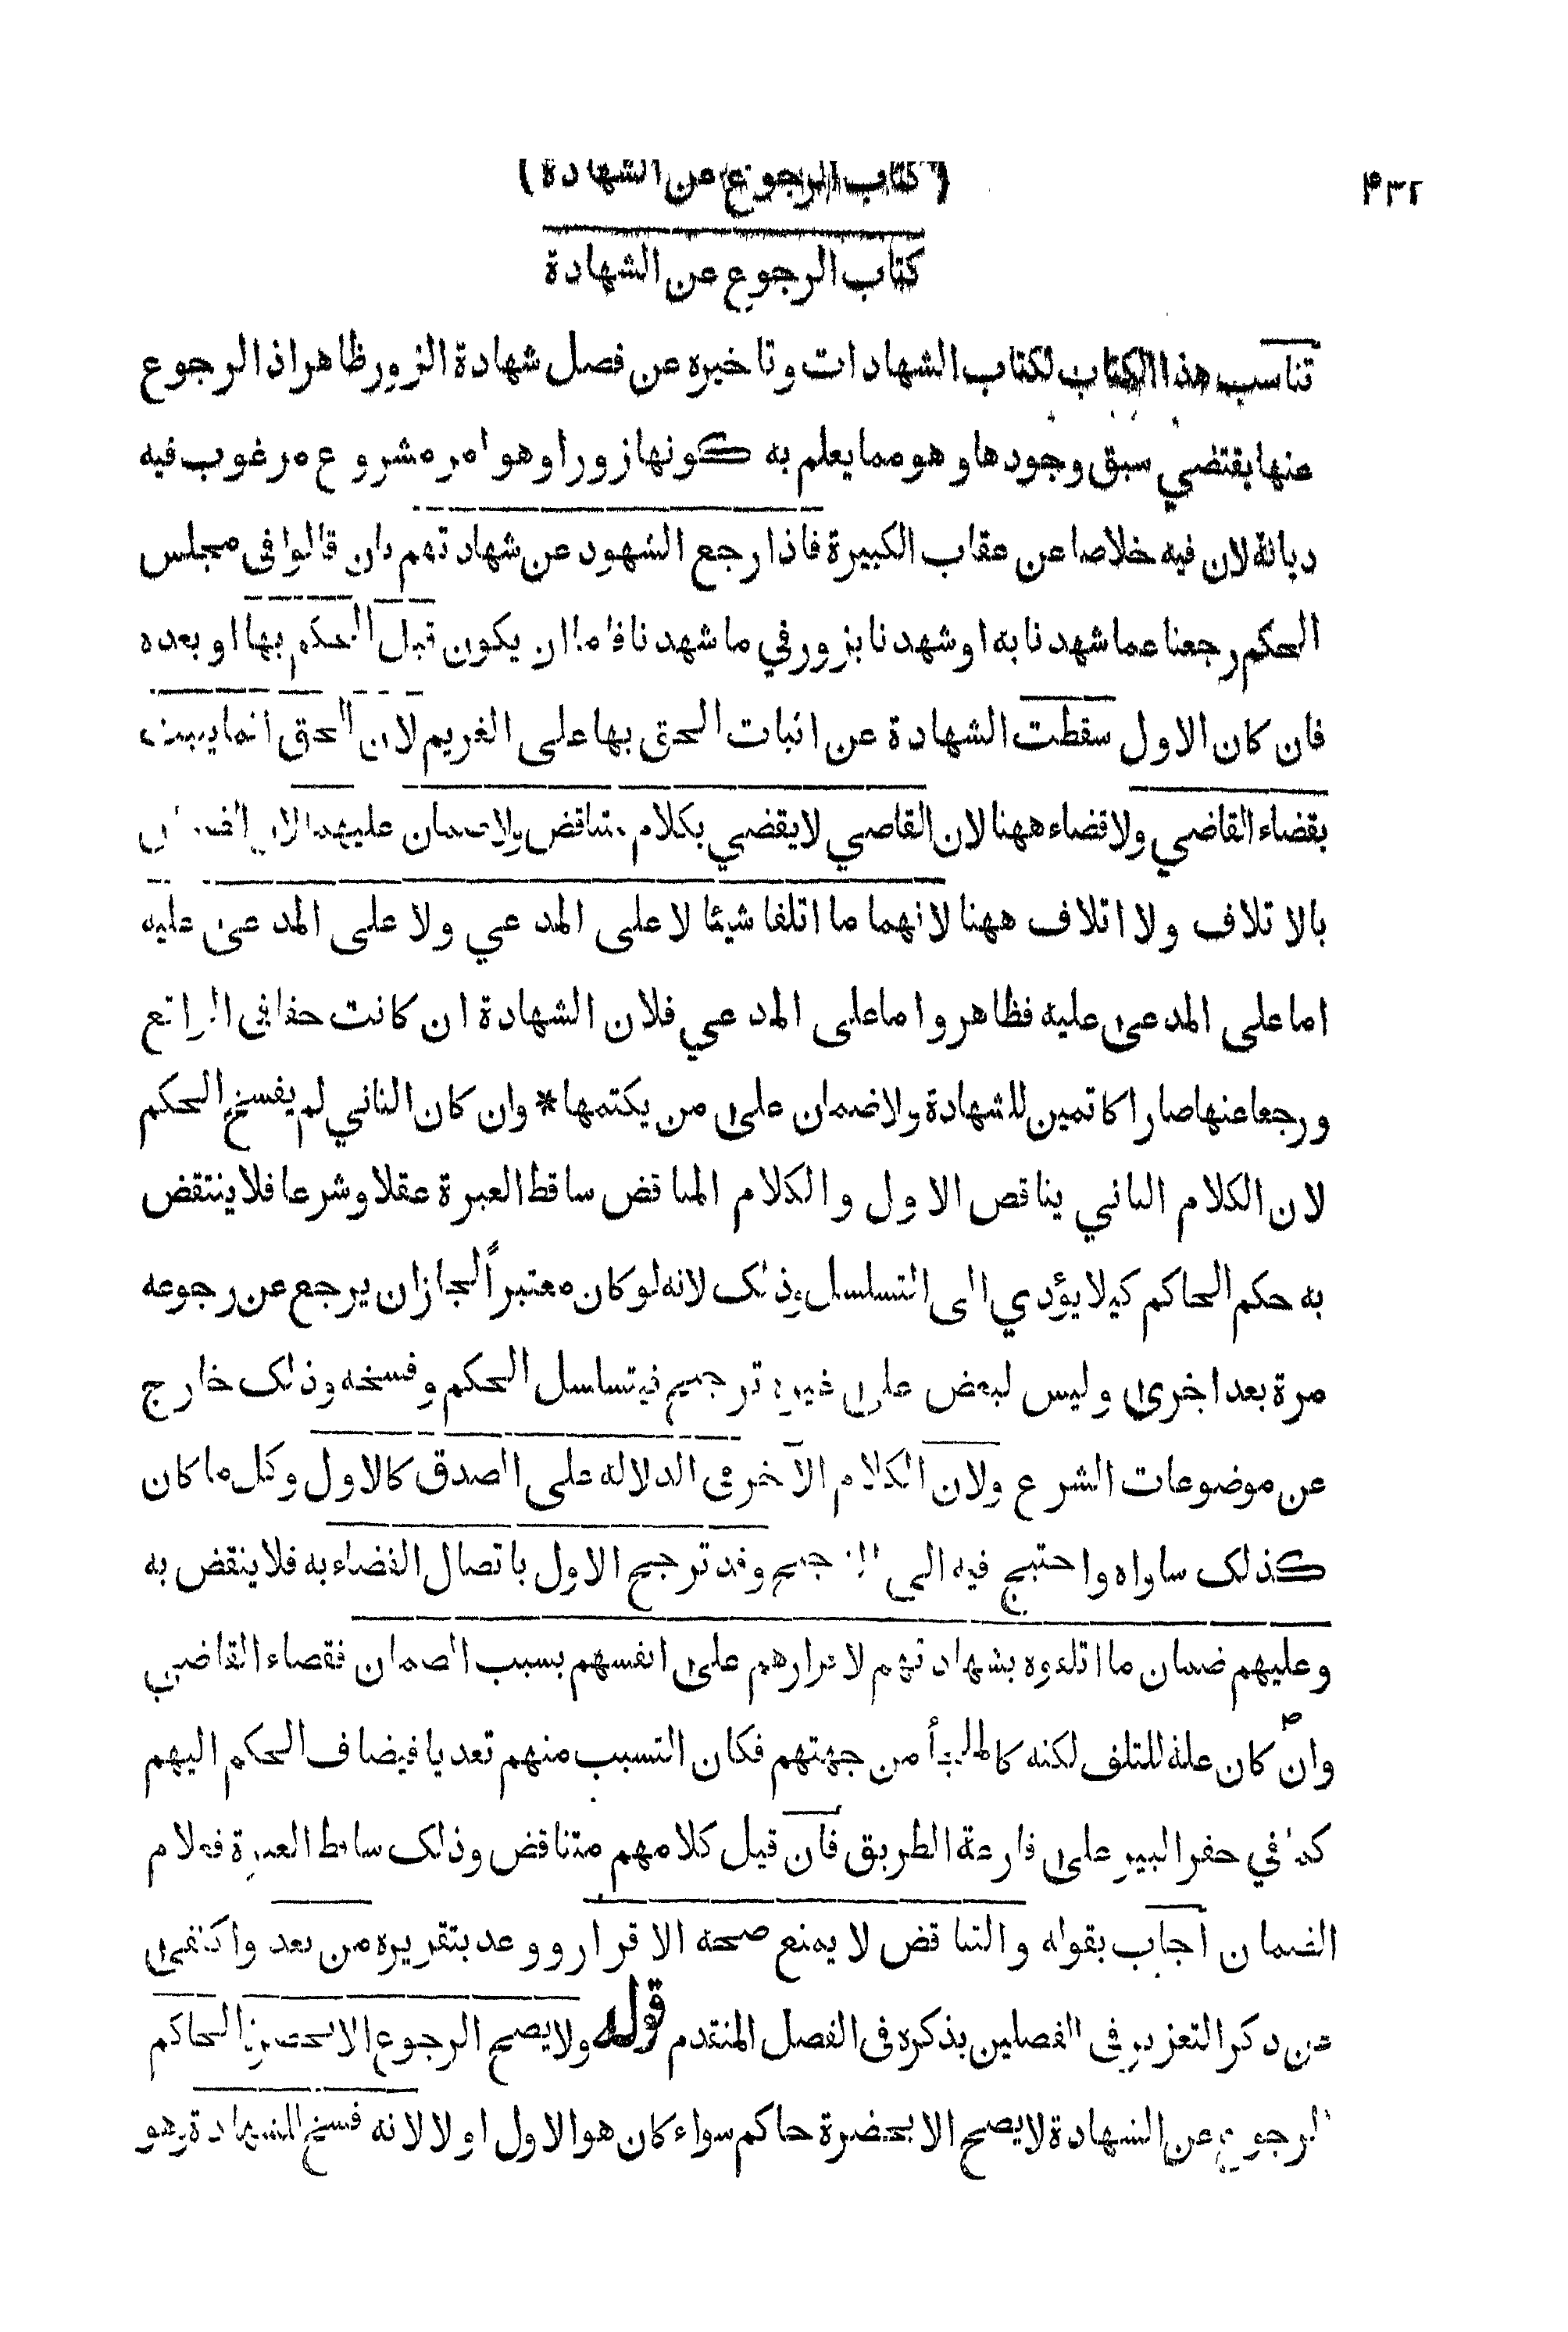 (كتاب الرجوع عن الشهادة)
۴۳۲
كتاب الرجوع عن الشهادة
تناسب هذا الكتاب لكتاب الشهادات وتاخيره عن فصل شهادة الزور ظاهر اذ الرجوع
عنها يقتضي سبق وجودها وهو مما يعلم به كونها زورا وهو امر مشروع مرغوب فيه
ديانة لان فيه خلاصا عن عقاب الكبيرة فاذا رجع الشهود عن شهادتهم بان قالوا فى مجلس
الحكم رجعنا عما شهدنا به او شهدنا بزور في ما شهدنا فاما ان يكون قبل الحكم بها او بعده
فان كان الاول سقطت الشهادة عن اثبات الحق بها على الغريم لان الحق انما يثبت
بقضاء القاضي ولا قضاء ههنا لان القاضي لا يقضي بكلام متناقض ولا ضمان عليهما لان
بالاتلاف ولا اتلاف ههنا لانهما ما اتلفا شيئا لا على المدعي ولا على المدعى عليه
اما على المدعى عليه فظاهر واما على المدعي فلان الشهادة ان كانت حقا في الواقع
ورجعا عنها صارا كاتمين للشهادة ولا ضمان على من يكتمها * وان كان الثاني لم يفسخ الحكم
لان الكلام الثاني يناقض الاول والكلام المناقض ساقط العبرة عقلا وشرعا فلا ينتقض
به حكم الحاكم كيلا يؤدي الى التسلسل وذلك لانه لو كان معتبراً لجاز ان يرجع عن رجوعه
مرة بعد اخرى وليس لبعض على غيره ترجيح فيتسلسل الحكم وفسخه وذلك خارج
عن موضوعات الشرع ولان الكلام الآخر فى الدلالة على الصدق كالاول وكل ما كان
كذلك ساواه واحتيج فيه الى الترجيح وقد ترجح الاول باتصال القضاء به فلا ينقض به
وعليهم ضمان ما اتلفوه بشهادتهم لاقرارهم على انفسهم بسبب الضمان فقضاء القاضي
وان كان علة للتلف لكنه كالملجأ من جهتهم فكان التسبب منهم تعديا فيضاف الحكم اليهم
كما في حفر البير على قارعة الطريق فان قيل كلامهم متناقض وذلك ساقط العبرة فعلام
الضمان اجاب بقوله والتناقض لا يمنع صحة الاقرار ووعد بتقريره من بعد واكتفى
عن ذكر التعزير في الفصلين بذكره فى الفصل المتقدم قوله ولا يصح الرجوع الا بحضرة الحاكم
الرجوع عن الشهادة لا يصح الا بحضرة حاكم سواء كان هو الاول او لا لانه فسخ للشهادة وهو